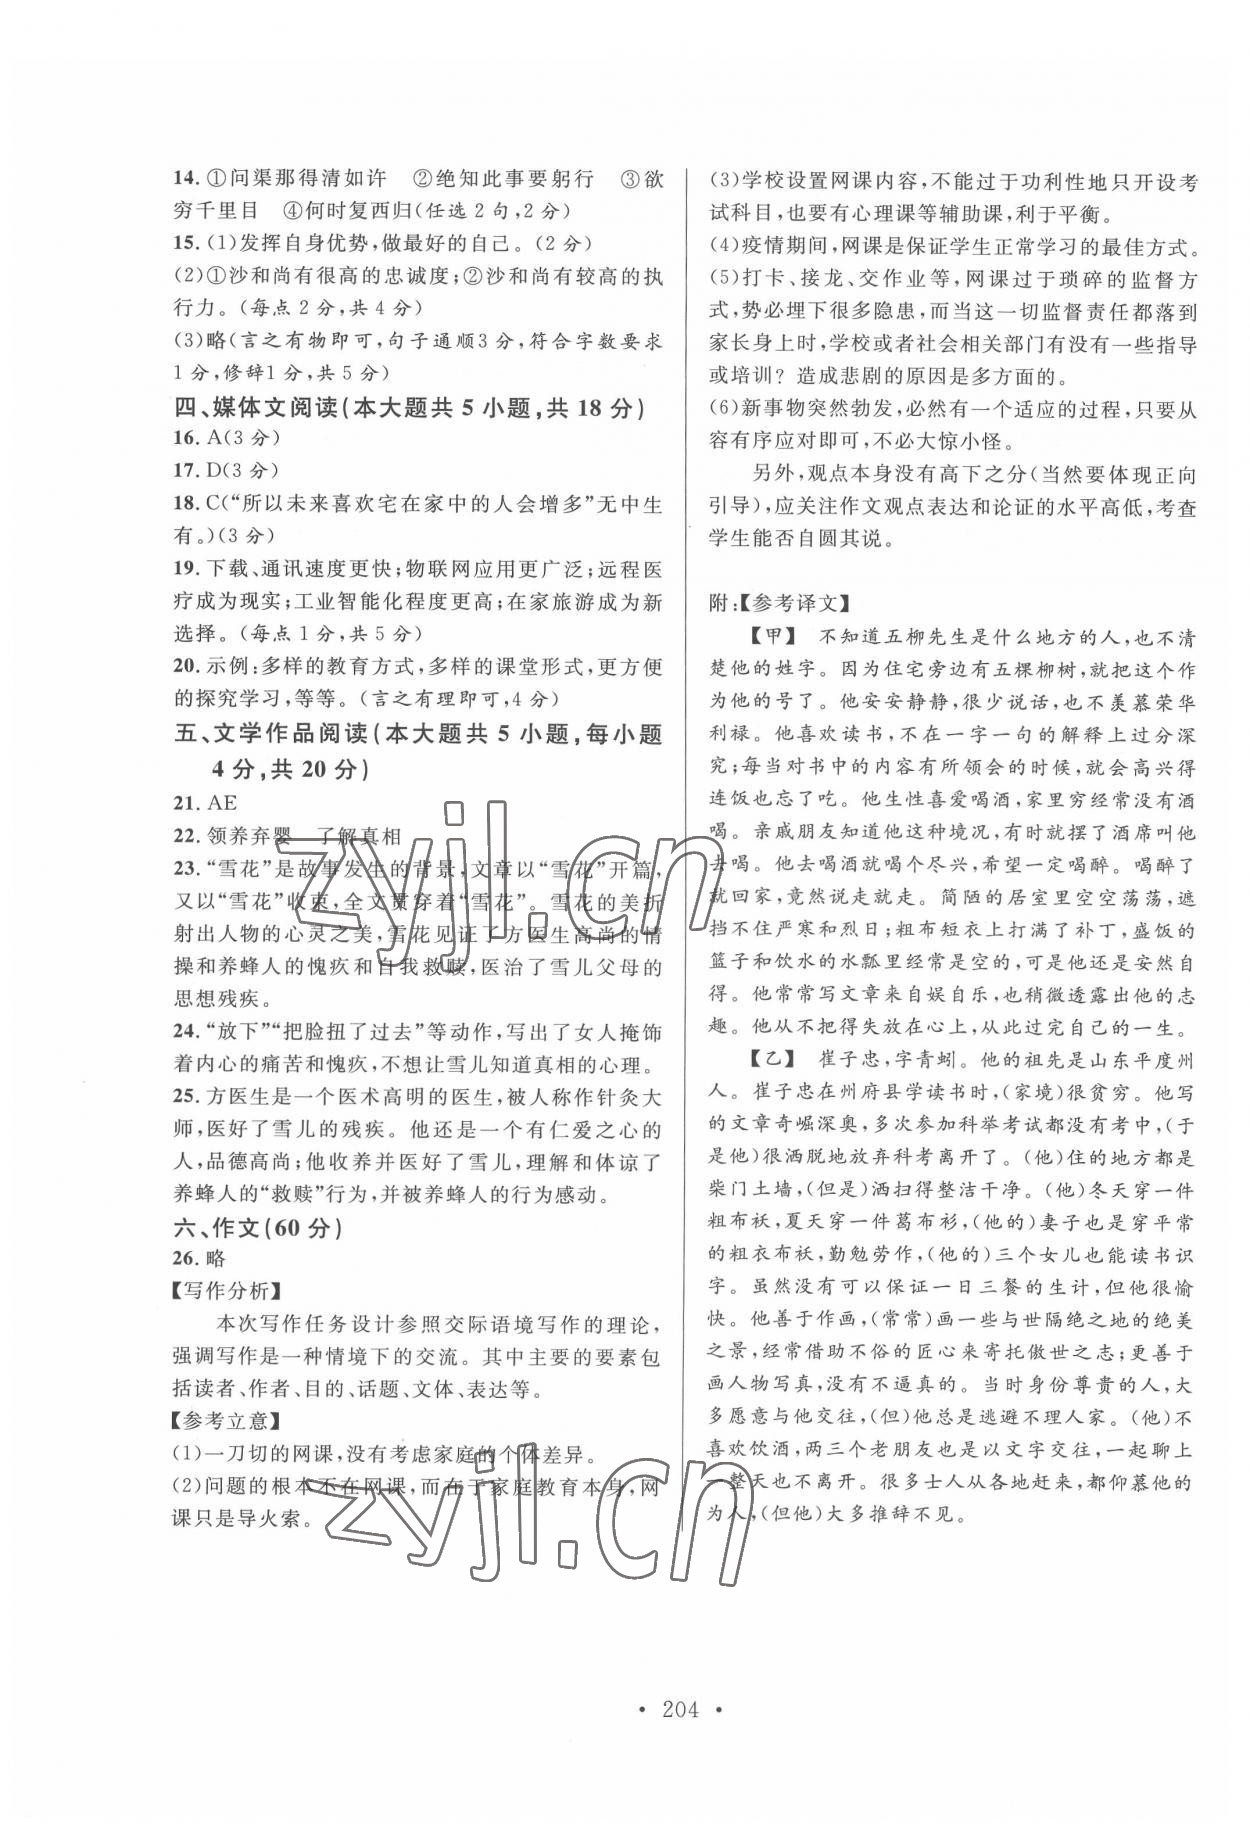 14. ①问渠那得清如许　②绝知此事要躬行　③欲
穷千里目　④何时复西归(任选2句,2分)
15. (1)发挥自身优势,做最好的自己。(2分)
(2)①沙和尚有很高的忠诚度;②沙和尚有较高的执
行力。(每点2分,共4分)
(3)略(言之有物即可,句子通顺3分,符合字数要求
1分,修辞1分,共5分)
四、媒体文阅读(本大题共5小题,共18分)
16. A(3分)
17. D(3分)
18. C(“所以未来喜欢宅在家中的人会增多”无中生
有。)(3分)
19. 下载、通讯速度更快;物联网应用更广泛;远程医
疗成为现实;工业智能化程度更高;在家旅游成为新
选择。(每点1分,共5分)
20. 示例:多样的教育方式,多样的课堂形式,更方便
的探究学习,等等。(言之有理即可,4分)
五、文学作品阅读(本大题共5小题,每小题
4分,共20分)
21. AE
22. 领养弃婴　了解真相
23. “雪花”是故事发生的背景,文章以“雪花”开篇,
又以“雪花”收束,全文贯穿着“雪花”。雪花的美折
射出人物的心灵之美,雪花见证了方医生高尚的情
操和养蜂人的愧疚和自我救赎,医治了雪儿父母的
思想残疾。
24. “放下”“把脸扭了过去”等动作,写出了女人掩饰
着内心的痛苦和愧疚,不想让雪儿知道真相的心理。
25. 方医生是一个医术高明的医生,被人称作针灸大
师,医好了雪儿的残疾。他还是一个有仁爱之心的
人,品德高尚;他收养并医好了雪儿,理解和体谅了
养蜂人的“救赎”行为,并被养蜂人的行为感动。
六、作文(60分)
26. 略
【写作分析】
本次写作任务设计参照交际语境写作的理论,
强调写作是一种情境下的交流。其中主要的要素包
括读者、作者、目的、话题、文体、表达等。
【参考立意】
(1)一刀切的网课,没有考虑家庭的个体差异。
(2)问题的根本不在网课,而在于家庭教育本身,网
课只是导火索。
(3)学校设置网课内容,不能过于功利性地只开设考
试科目,也要有心理课等辅助课,利于平衡。
(4)疫情期间,网课是保证学生正常学习的最佳方式。
(5)打卡、接龙、交作业等,网课过于琐碎的监督方
式,势必埋下很多隐患,而当这一切监督责任都落到
家长身上时,学校或者社会相关部门有没有一些指导
或培训?造成悲剧的原因是多方面的。
(6)新事物突然勃发,必然有一个适应的过程,只要从
容有序应对即可,不必大惊小怪。
另外,观点本身没有高下之分(当然要体现正向
引导),应关注作文观点表达和论证的水平高低,考查
学生能否自圆其说。
附:【参考译文】
【甲】　不知道五柳先生是什么地方的人,也不清
楚他的姓字。因为住宅旁边有五棵柳树,就把这个作
为他的号了。他安安静静,很少说话,也不羡慕荣华
利禄。他喜欢读书,不在一字一句的解释上过分深
究;每当对书中的内容有所领会的时候,就会高兴得
连饭也忘了吃。他生性喜爱喝酒,家里穷经常没有酒
喝。亲戚朋友知道他这种境况,有时就摆了酒席叫他
去喝。他去喝酒就喝个尽兴,希望一定喝醉。喝醉了
就回家,竟然说走就走。简陋的居室里空空荡荡,遮
挡不住严寒和烈日;粗布短衣上打满了补丁,盛饭的
篮子和饮水的水瓢里经常是空的,可是他还是安然自
得。他常常写文章来自娱自乐,也稍微透露出他的志
趣。他从不把得失放在心上,从此过完自己的一生。
【乙】　崔子忠,字青蚓。他的祖先是山东平度州
人。崔子忠在州府县学读书时,(家境)很贫穷。他写
的文章奇崛深奥,多次参加科举考试都没有考中,(于
是他)很洒脱地放弃科考离开了。(他)住的地方都是
柴门土墙,(但是)洒扫得整洁干净。(他)冬天穿一件
粗布袄,夏天穿一件葛布衫,(他的)妻子也是穿平常
的粗衣布袄,勤勉劳作,(他的)三个女儿也能读书识
字。虽然没有可以保证一日三餐的生计,但他很愉
快。他善于作画,(常常)画一些与世隔绝之地的绝美
之景,经常借助不俗的匠心来寄托傲世之志;更善于
画人物写真,没有不逼真的。当时身份尊贵的人,大
多愿意与他交往,(但)他总是逃避不理人家。(他)不
喜欢饮酒,两三个老朋友以文字交往,一起聊上
一整天也不离开。很多士人从各地赶来,都仰慕他的
为人,(但他)大多推辞不见。
zyjl.cn
zyjl.cn
· 204 ·